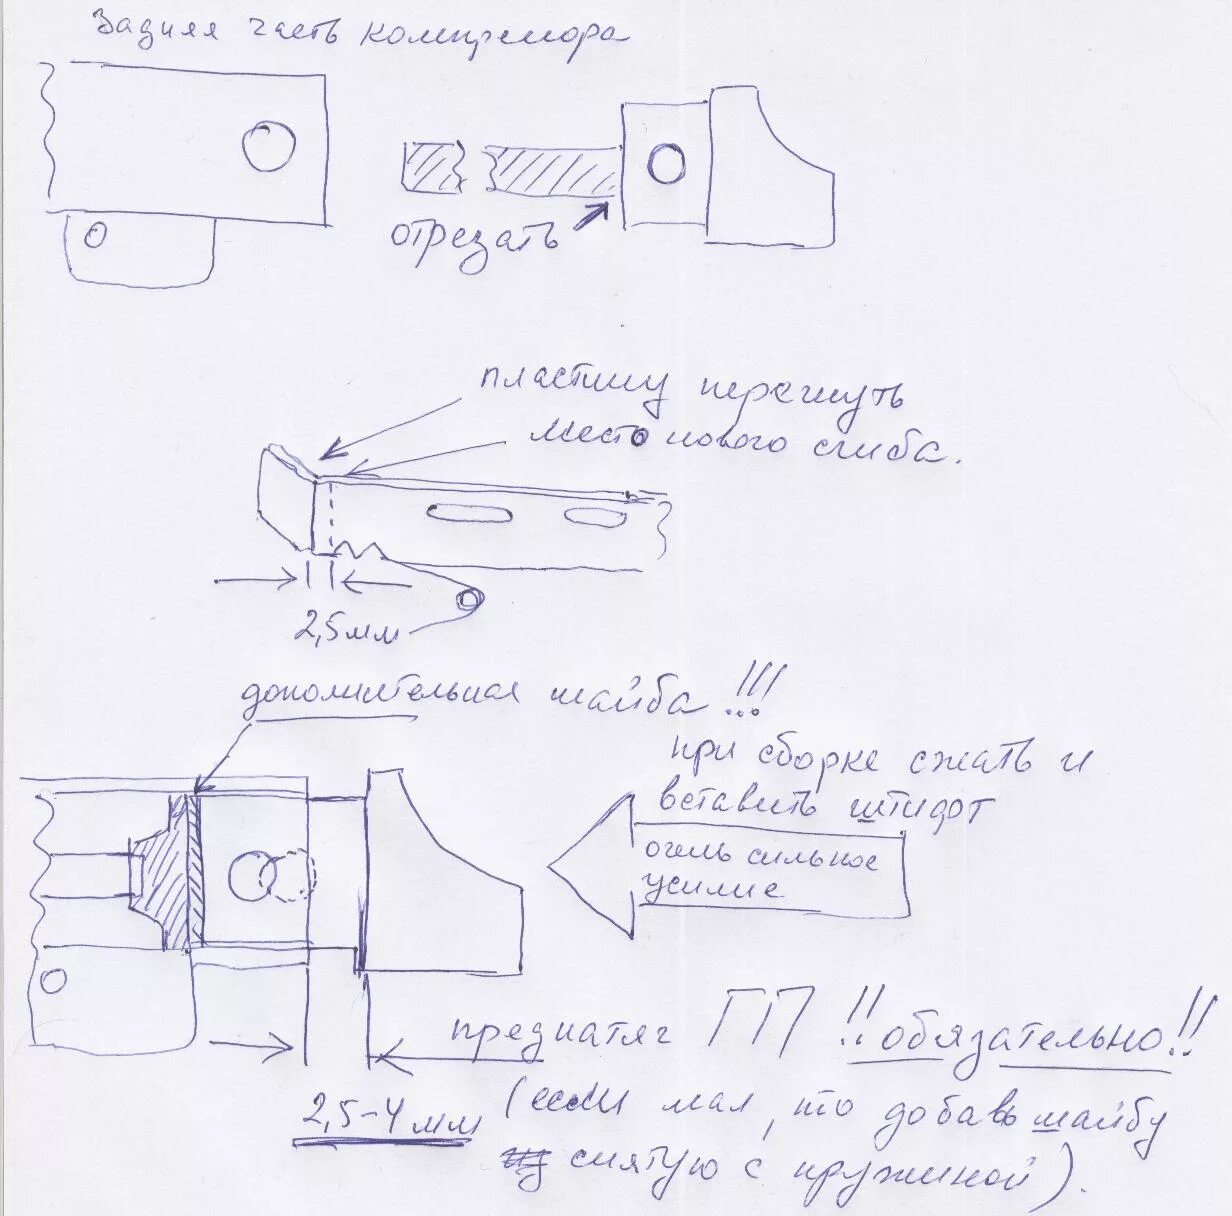 Задняя часть компрессора
отрезать
пластину перегнуть
место нового сгиба.
2,5мм
дополнительная шайба !!!
при сборке сжать и
вставить штифт
очень сильное
усилие
преднатяг ГП !! обязательно!!
2,5-4 мм
(если мал, то добавь шайбу
снятую с пружиной).